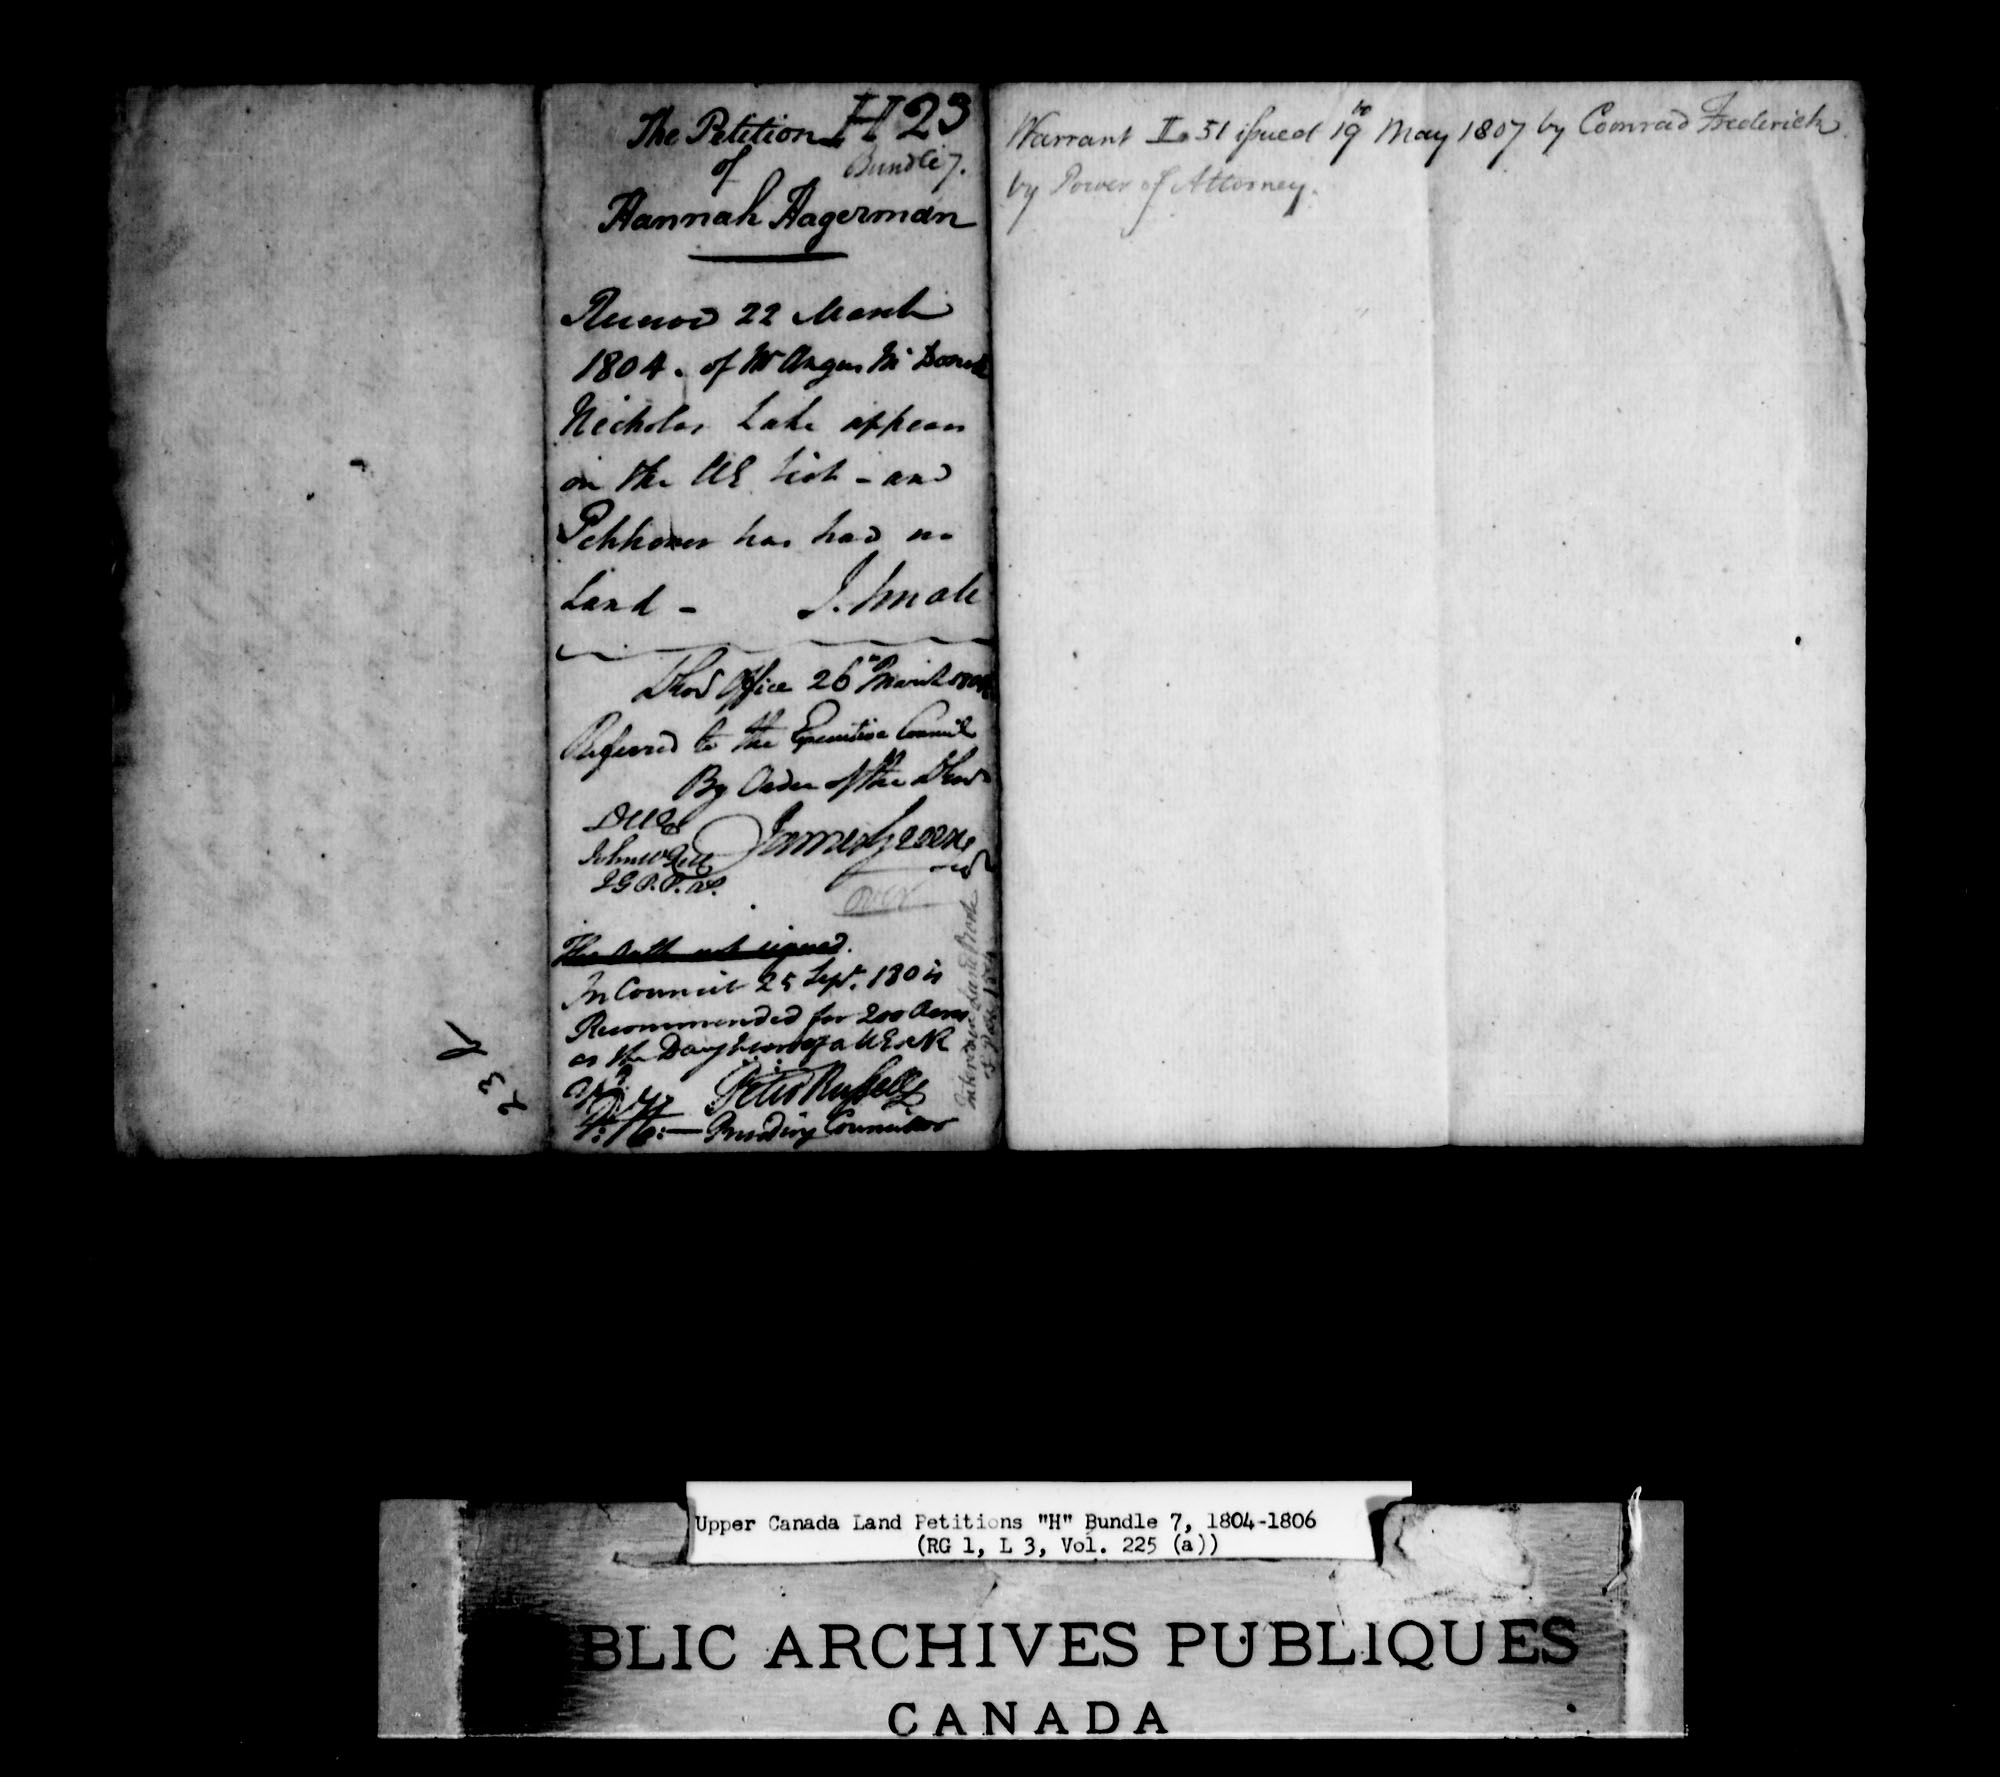 The Petition H 23
of Bundle 7.
Hannah Hagerman
Received 22 March
1804. of Mr Angus McDonell
Nicholas Lake appears
on the UE list - and
Petitioner has had no
Land - J. Small
Lt Govs Office 26th March 1804
Referred to the Executive Council
By Order of the Lt Govr
James Green
Secy
The Oath not signed.
In Council 25 Sept. 180
Recommended for 200 Acres
as the Daughter of a UE
Peter Russell
Presiding Councillor
Entered in Land Book
23
Warrant No 51 issued 19th May 1807 by Coonrad Frederick
by Power of Attorney.
Upper Canada Land Petitions "H" Bundle 7, 1804-1806
(RG 1, L 3, Vol. 225 (a))
BLIC ARCHIVES PUBLIQUES
CANADA